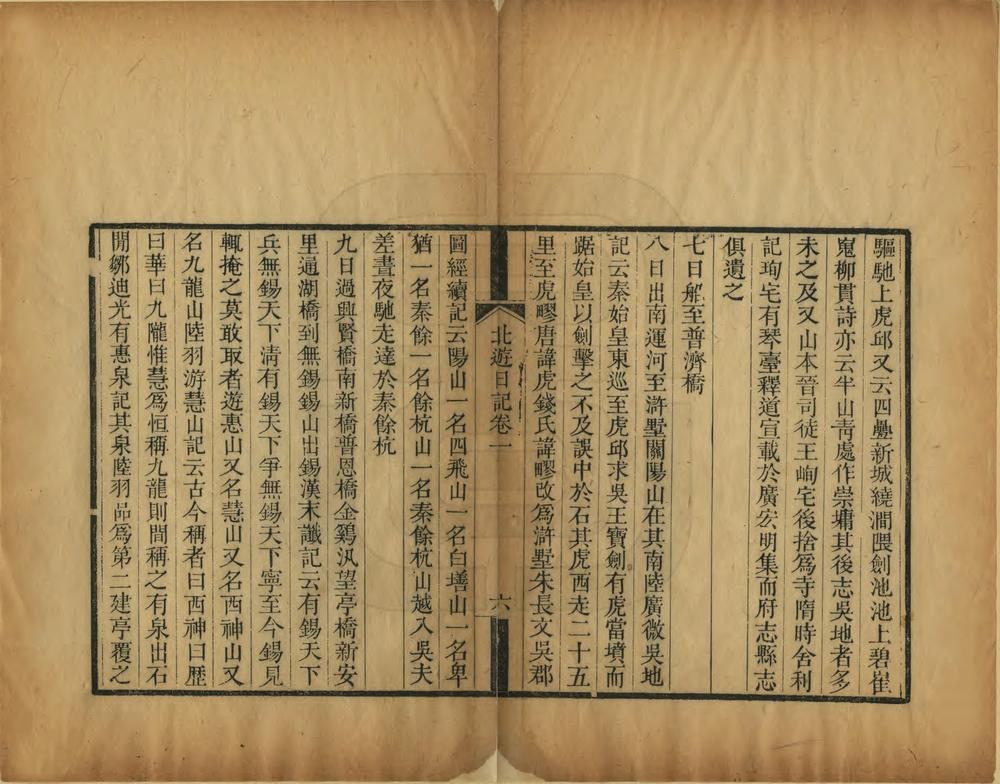 驅馳上虎邱又云四疊新城繞澗隈劍池池上碧崔
嵬柳貫詩亦云半山青處作崇墉其後志吳地者多
未之及又山本晉司徒王峋宅後捨爲寺隋時舍利
記珣宅有琴臺釋道宣載於廣宏明集而府志縣志
俱遺之
七日船至普濟橋
八日出南運河至滸墅關陽山在其南陸廣微吳地
記云秦始皇東巡至虎邱求吳王寶劍有虎當墳而
踞始皇以劍擊之不及誤中於石其虎西走二十五
里至虎疁唐諱虎錢氏諱疁改爲滸墅朱長文吳郡
北遊日記卷一
六
圖經續記云陽山一名四飛山一名白墡山一名卑
猶一名秦餘一名餘杭山一名秦餘杭山越入吳夫
差晝夜馳走達於秦餘杭
九日過興賢橋南新橋普恩橋金鷄汎望亭橋新安
里通湖橋到無錫錫山出錫漢末讖記云有錫天下
兵無錫天下淸有錫天下爭無錫天下寧至今錫見
輒掩之莫敢取者遊惠山又名慧山又名西神山又
名九龍山陸羽游慧山記云古今稱者曰西神曰歴
曰華曰九隴惟慧爲恒稱九龍則間稱之有泉出石
閒鄒迪光有惠泉記其泉陸羽品爲第二建亭覆之